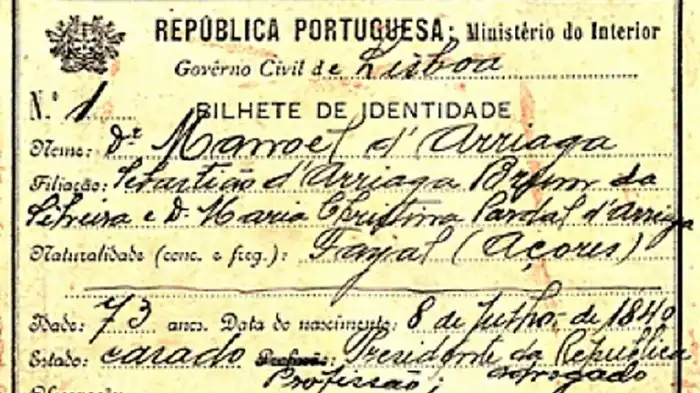 REPÚBLICA PORTUGUESA; Ministério do Interior
Govêrno Civil de Lisboa
N.º 1
BILHETE DE IDENTIDADE
Nome: Dr Manoel d'Arriaga
Filiação: Sebastião d'Arriaga Brum da
Silveira e D. Maria Christina Pardal d'Arriaga
Naturalidade (conc. e freg.): Fayal (Açores)
Idade: 73 anos. Data do nascimento: 8 de Julho de 1840
Estado: casado Profissão: Presidente da Republica
Profissão: advogado